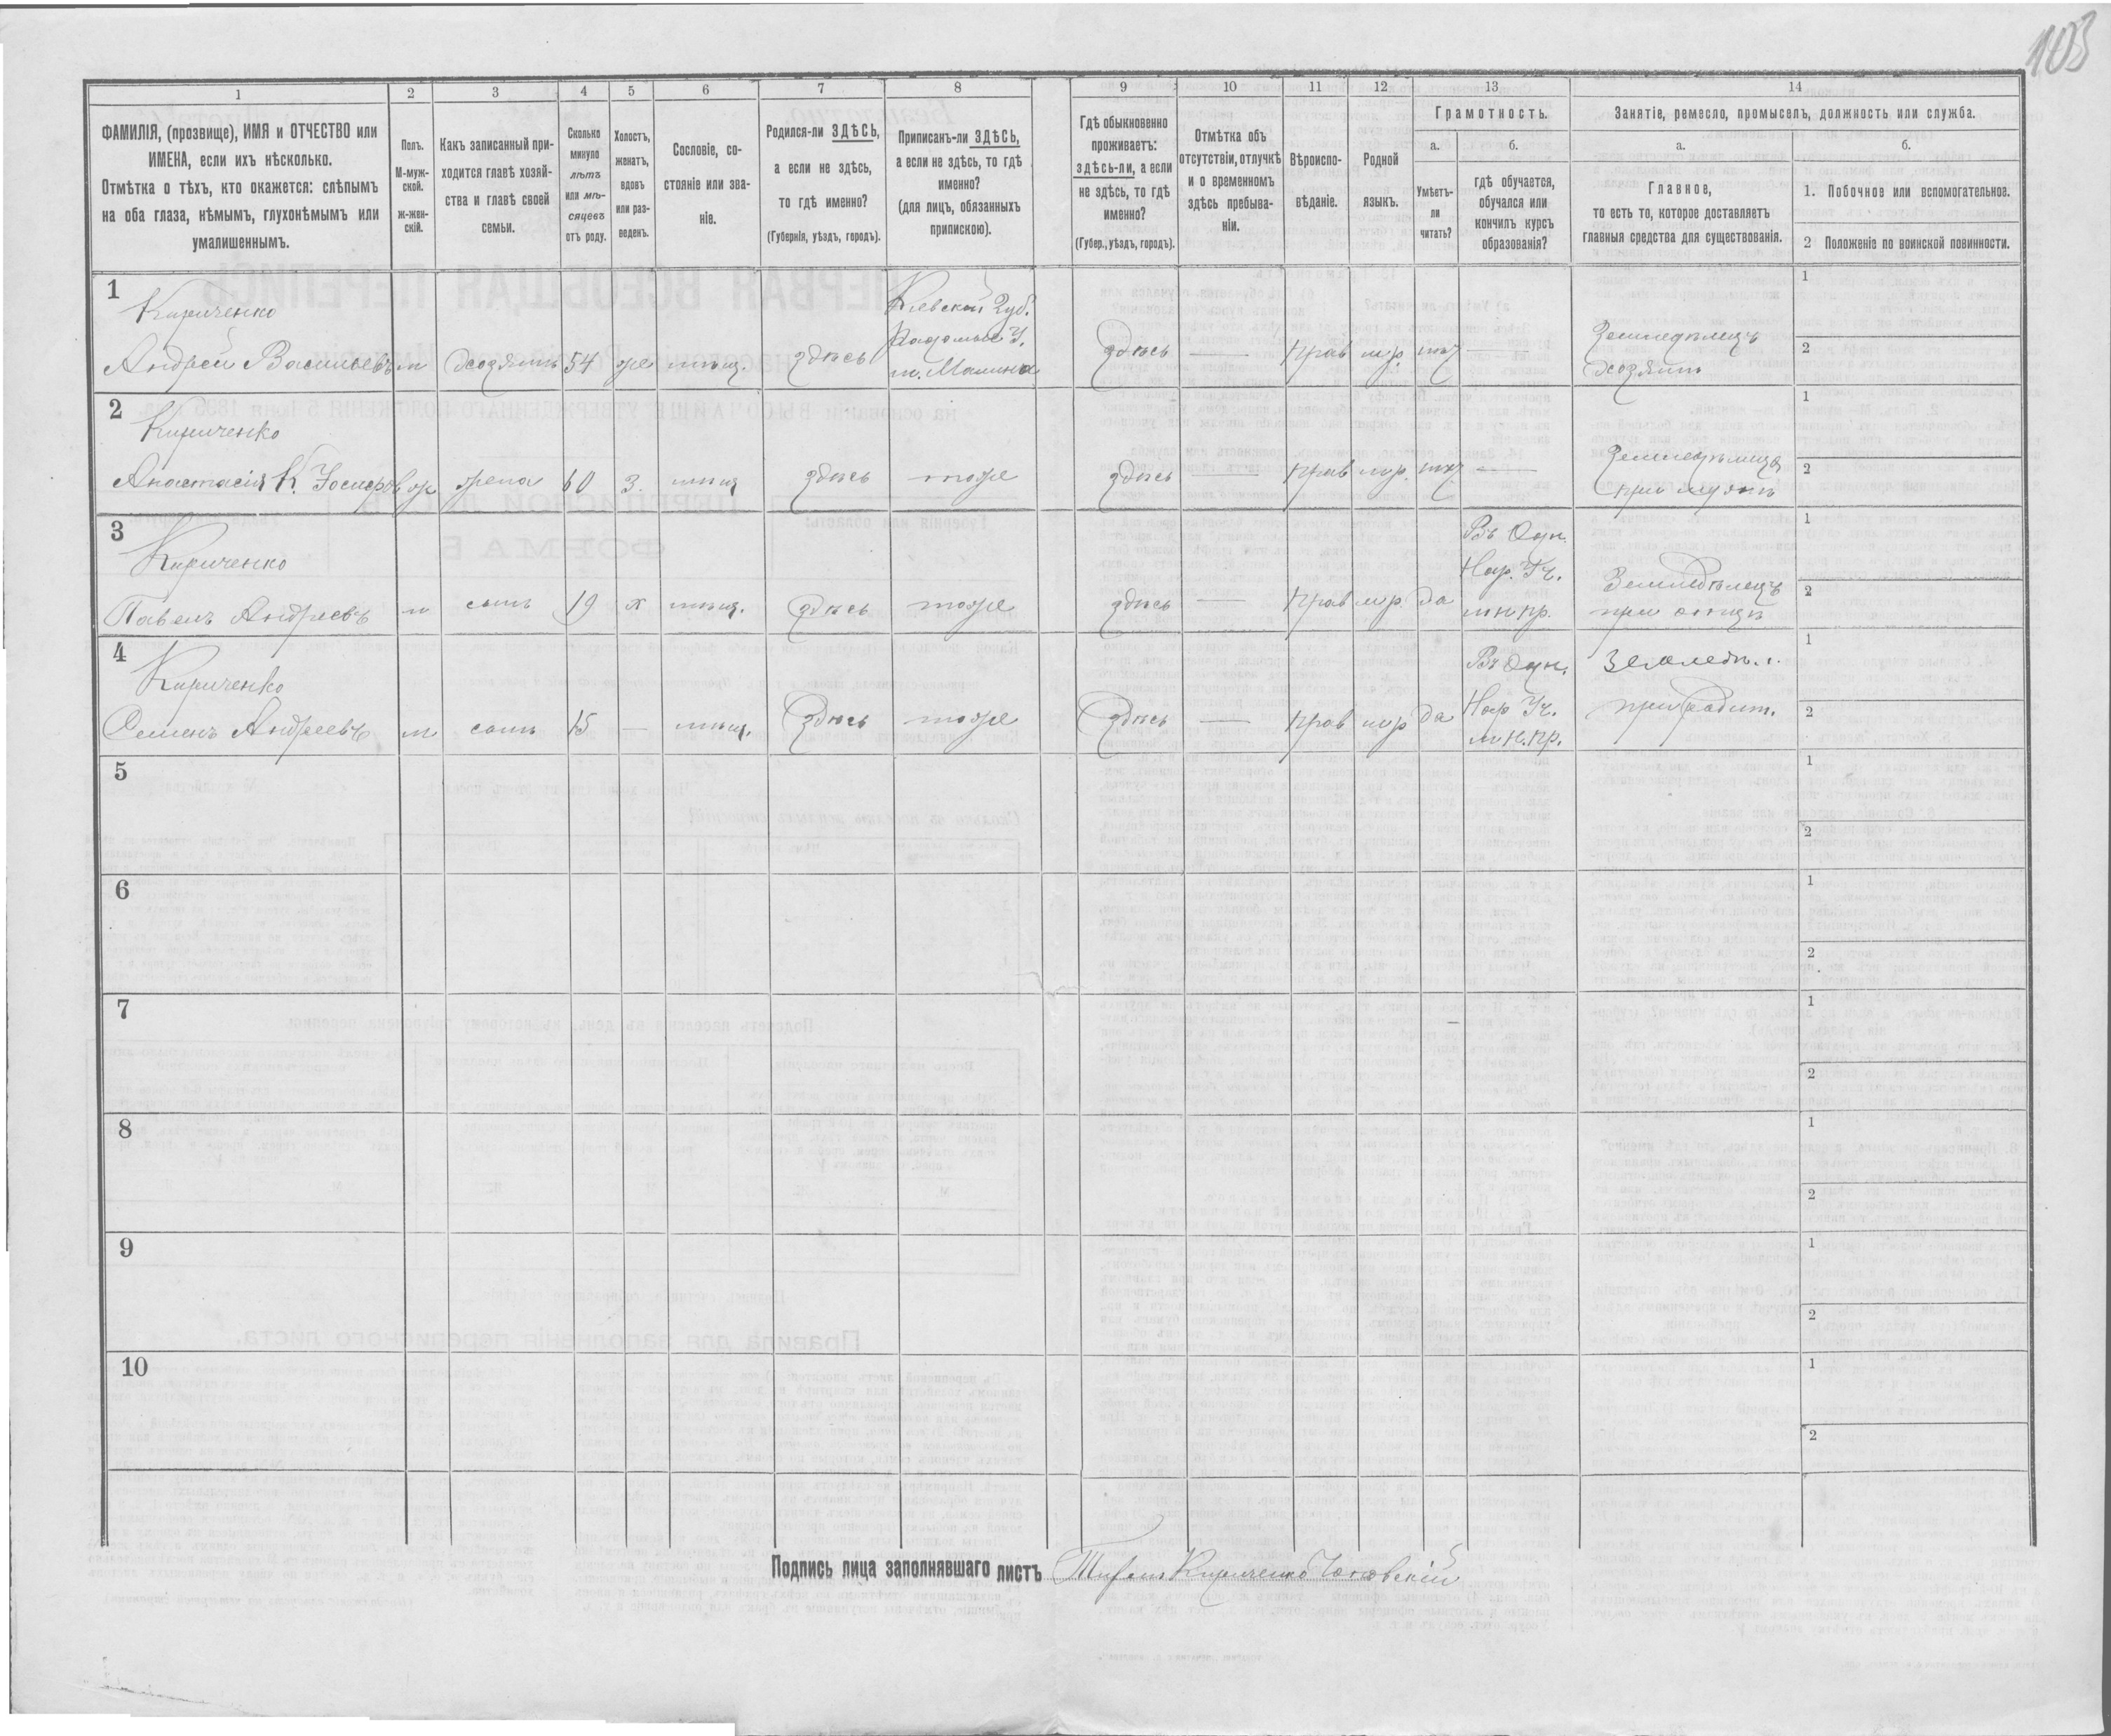 103
1 2 3 4 5 6 7 8 9 10 11 12 13 14
ФАМИЛІЯ, (прозвище), ИМЯ и ОТЧЕСТВО или
ИМЕНА, если ихъ нѣсколько.
Отмѣтка о тѣхъ, кто окажется: слѣпымъ
на оба глаза, нѣмымъ, глухонѣмымъ или
умалишеннымъ.
Полъ.
М-муж-
ской.
ж-жен-
скій.
Какъ записанный при-
ходится главѣ хозяй-
ства и главѣ своей
семьи.
Сколько
минуло
лѣтъ
или мѣ-
сяцевъ
отъ роду.
Холостъ,
женатъ,
вдовъ
или раз-
веденъ.
Сословіе, со-
стояніе или зва-
ніе.
Родился-ли ЗДѢСЬ,
а если не здѣсь,
то гдѣ именно?
(Губернія, уѣздъ, городъ).
Приписанъ-ли ЗДѢСЬ,
а если не здѣсь, то гдѣ
именно?
(для лицъ, обязанныхъ
припискою).
Гдѣ обыкновенно
проживаетъ:
здѣсь-ли, а если
не здѣсь, то гдѣ
именно?
(Губер., уѣздъ, городъ).
Отмѣтка объ
отсутствіи, отлучкѣ
и о временномъ
здѣсь пребыва-
ніи.
Вѣроиспо-
вѣданіе.
Родной
языкъ.
Грамотность.
а.
Умѣетъ-
ли
читать?
б.
гдѣ обучается,
обучался или
кончилъ курсъ
образованія?
Занятіе, ремесло, промыселъ, должность или служба.
а.
Главное,
то есть то, которое доставляетъ
главныя средства для существованія.
б.
1. Побочное или вспомогательное.
2 Положеніе по воинской повинности.
1
Кириченко
Андрей Васильевъ м Хозяинъ 54 же мѣщ. здѣсь
Кіевской Губ.
м. Малинъ
здѣсь — прав мр.
Земледѣлецъ
Хозяинъ
1
2
2
Кириченко
Анастасія жена 60 з. мѣщ здѣсь тоже здѣсь — прав мр.
при мужѣ
1
2
3
Кириченко
Павелъ Андреевъ м сынъ 19 х мѣщ. здѣсь тоже здѣсь — прав мр да
Нар. Уч.
м н пр.
Земледѣлецъ
при отцѣ
1
2
4
Кириченко
Семенъ Андреевъ м сынъ 15 — мѣщ. Здѣсь тоже Здѣсь — прав мр да
Нар Уч.
м н. пр.
Земледѣл.
при родит.
1
2
5
1
2
6
1
2
7
1
2
8
1
2
9
1
2
10
1
2
Подпись лица заполнявшаго листъ Кириченко